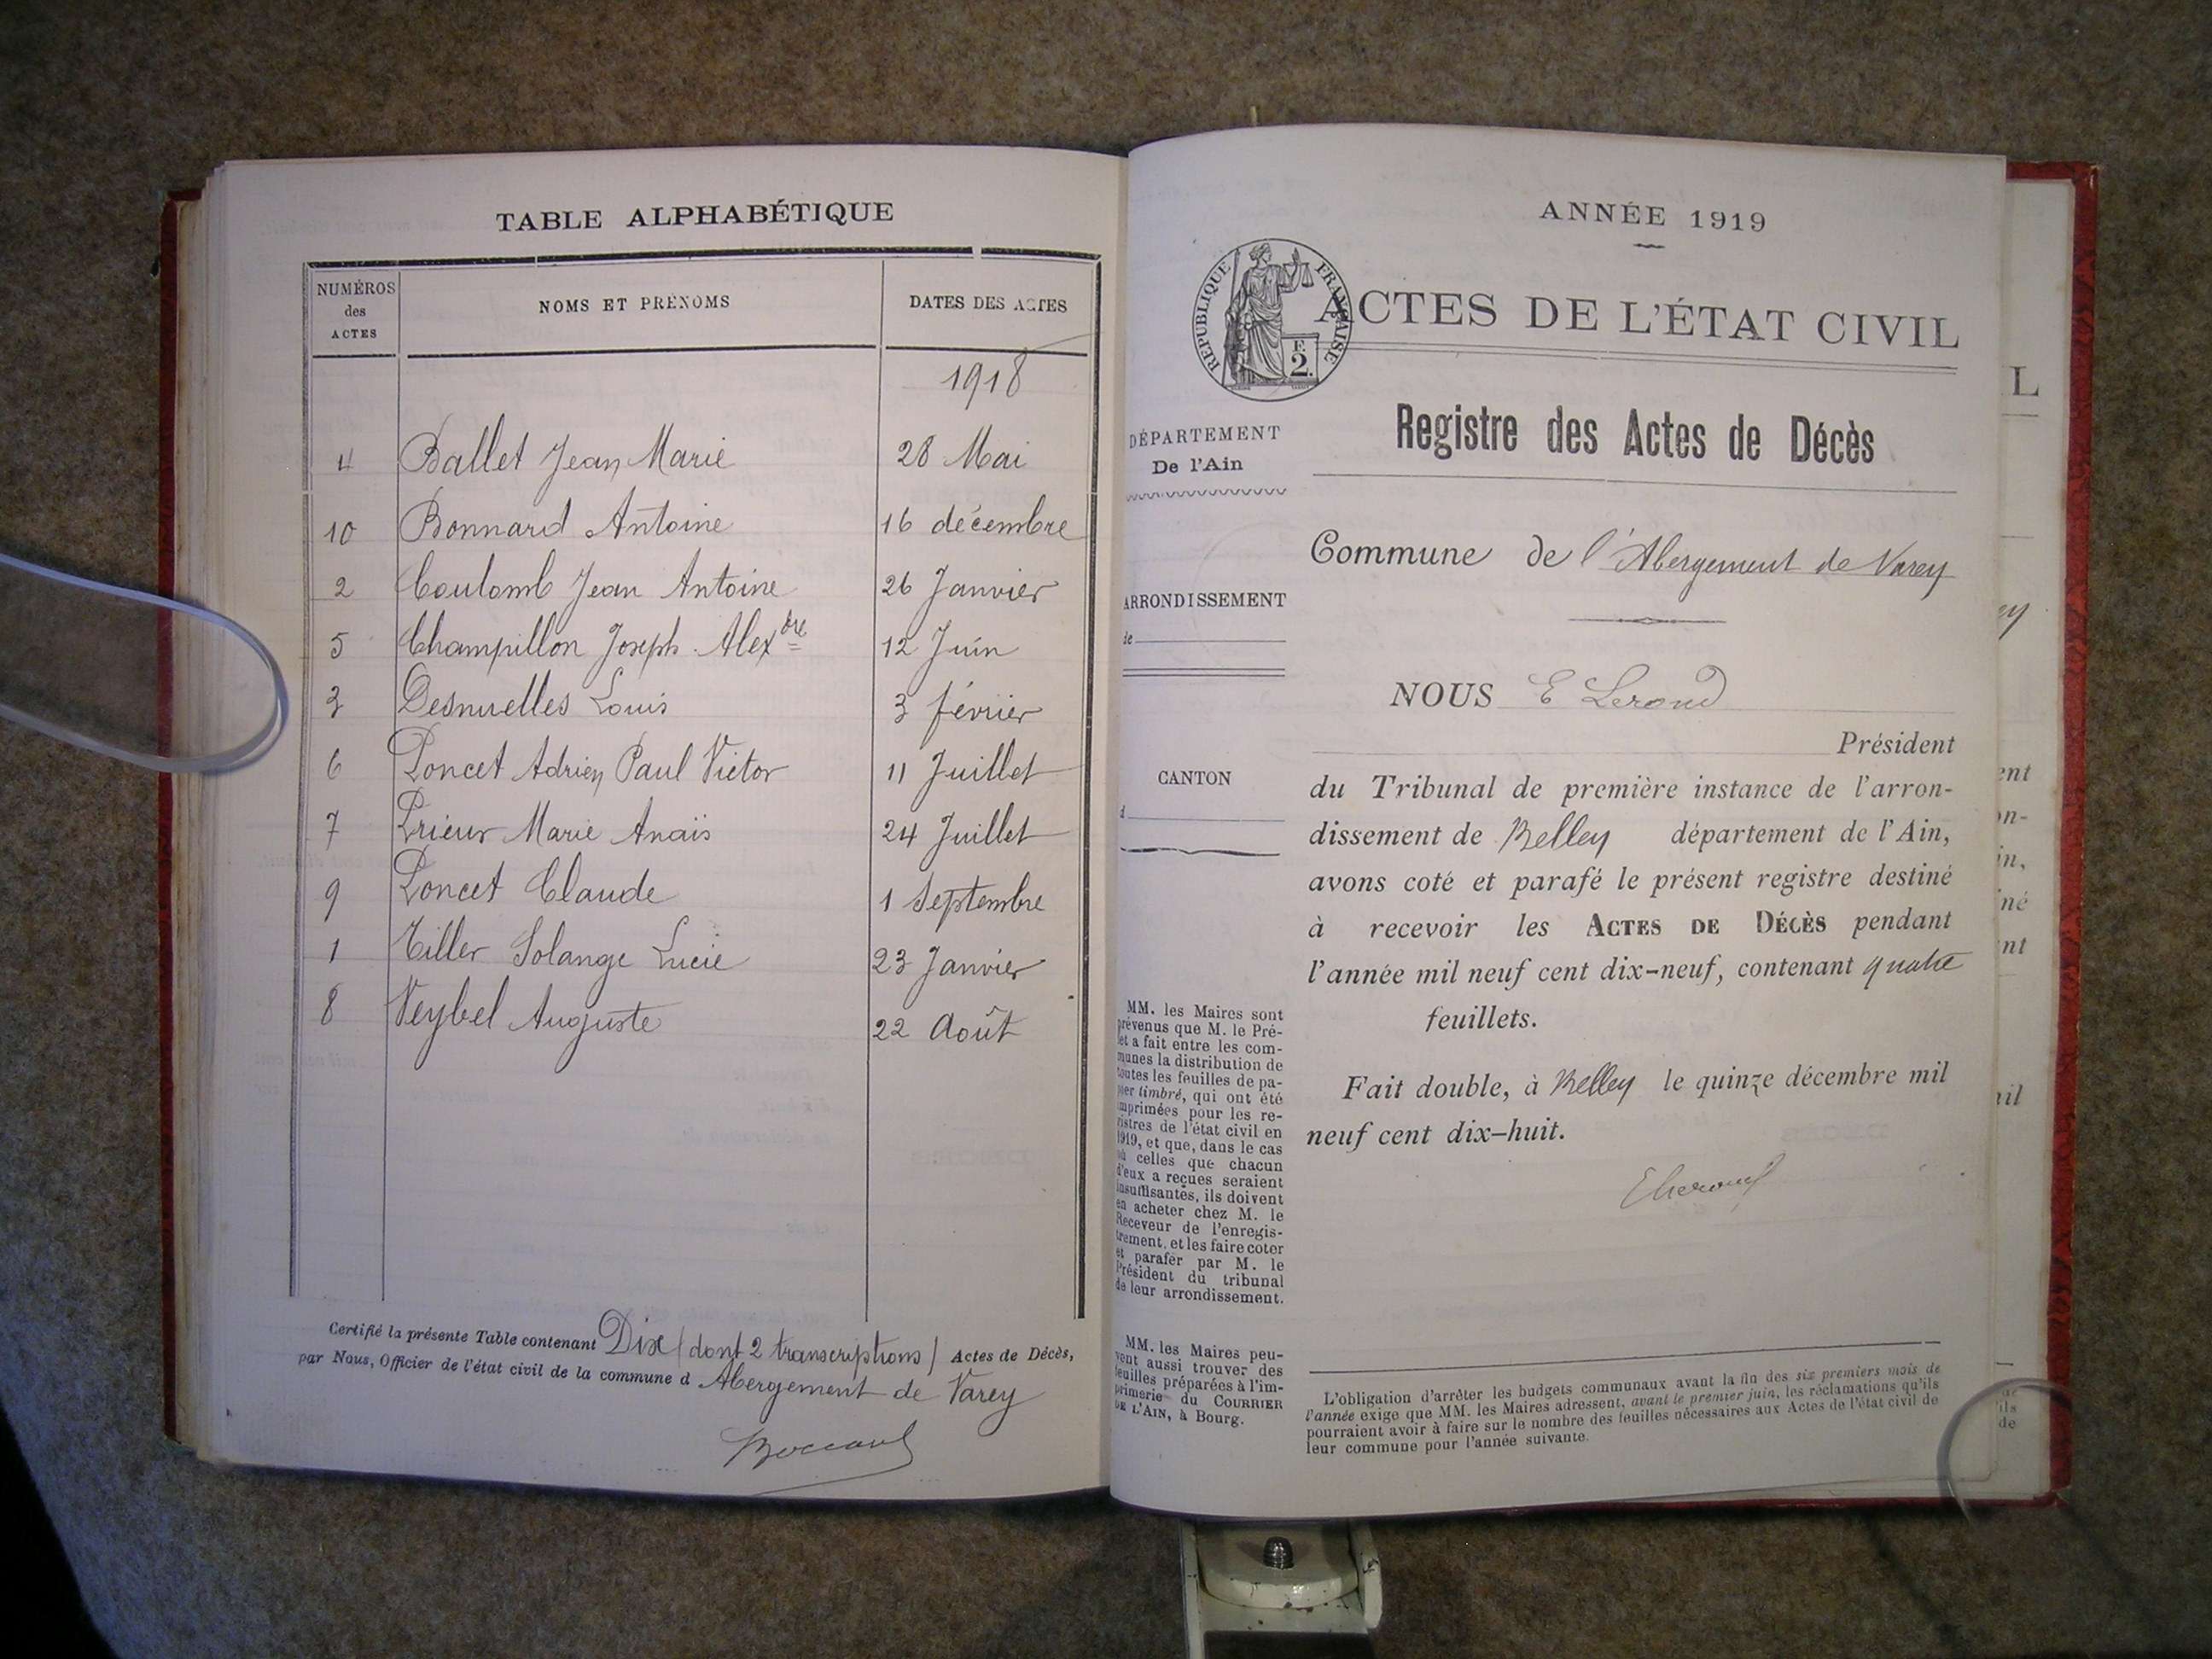 TABLE ALPHABÉTIQUE
NUMÉROS des ACTES
NOMS ET PRÉNOMS
DATES DES ACTES
1918
4 Ballet Jean Marie 28 Mai
10 Bonnard Antoine 16 décembre
2 Coulomb Jean Antoine 26 Janvier
5 Champillon Joseph Alexdre 12 Juin
3 Desnuelles Louis 3 février
6 Poncet Adrien Paul Victor 11 Juillet
7 Prieur Marie Anaïs 24 Juillet
9 Poncet Claude 1 Septembre
1 Tiller Solange Lucie 23 Janvier
8 Veybel Auguste 22 Août
Certifié la présente Table contenant Dix (dont 2 transcriptions) Actes de Décès,
par Nous, Officier de l'état civil de la commune d Abergement de Varey
ANNÉE 1919
RÉPUBLIQUE FRANÇAISE
F.
2.
ACTES DE L'ÉTAT CIVIL
Registre des Actes de Décès
DÉPARTEMENT
De l'Ain
ARRONDISSEMENT
de
CANTON
d
Commune de l'Abergement de Varey
NOUS E Lerond
Président
du Tribunal de première instance de l'arron-
dissement de Belley département de l'Ain,
avons coté et parafé le présent registre destiné
à recevoir les ACTES DE DÉCÈS pendant
l'année mil neuf cent dix-neuf, contenant quatre
feuillets.
Fait double, à Belley le quinze décembre mil
neuf cent dix-huit.
MM. les Maires sont
prévenus que M. le Pré-
fet a fait entre les com-
munes la distribution de
toutes les feuilles de pa-
pier timbré, qui ont été
imprimées pour les re-
gistres de l'état civil en
1919, et que, dans le cas
où celles que chacun
d'eux a reçues seraient
insuffisantes, ils doivent
en acheter chez M. le
Receveur de l'enregis-
trement, et les faire coter
et parafer par M. le
Président du tribunal
de leur arrondissement.
MM. les Maires peu-
vent aussi trouver des
feuilles préparées à l'im-
primerie du COURRIER
DE L'AIN, à Bourg.
L'obligation d'arrêter les budgets communaux avant la fin des six premiers mois de
l'année exige que MM. les Maires adressent, avant le premier juin, les réclamations qu'ils
pourraient avoir à faire sur le nombre des feuilles nécessaires aux Actes de l'état civil de
leur commune pour l'année suivante.